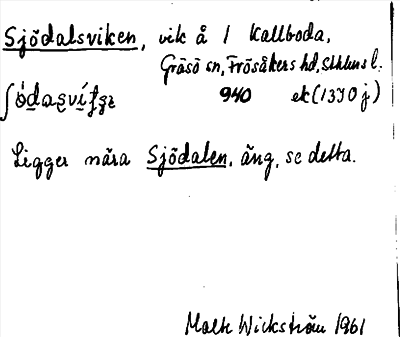 Sjödalsviken, vik å 1 Kallboda,
Gräsö sn, Frösåkers hd, Sthlms l.
940 ek (1330 j)
Ligger nära Sjödalen, äng, se detta.
Malte Wickström 1961